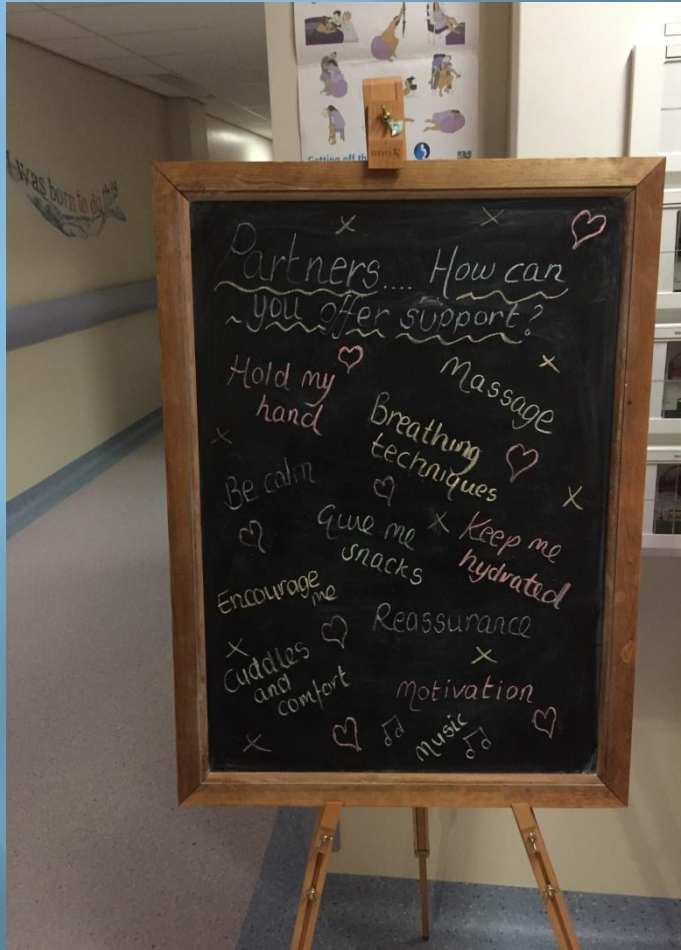 I was born to do this
Getting off th
Partners.... How can
you offer support?
Hold my
hand
Massage
Breathing
techniques
Be calm
Give me
snacks
Keep me
hydrated
Encourage
me
Reassurance
Cuddles
and
comfort
Motivation
Music